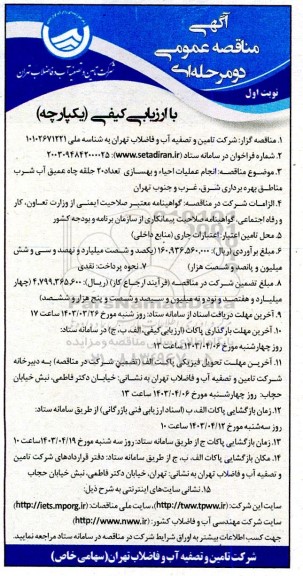 آگهی
مناقصه عمومی
دو مرحله‌ای
نوبت اول
شرکت تامین و تصفیه آب و فاضلاب تهران
با ارزیابی کیفی (یکپارچه)
۱. مناقصه گزار: شرکت تامین و تصفیه آب و فاضلاب تهران به شناسه ملی ۱۰۱۰۲۶۷۱۲۲۱
۲. شماره فراخوان در سامانه ستاد (www.setadiran.ir): ۲۰۰۳۰۹۴۸۴۲۰۰۰۰۲۵
۳. موضوع مناقصه: انجام عملیات احیاء و بهسازی تعداد ۲۰ حلقه چاه عمیق آب شرب
مناطق بهره برداری شرق، غرب و جنوب تهران
۴. الزامات شرکت در مناقصه: گواهینامه معتبر صلاحیت ایمنی از وزارت تعاون، کار
و رفاه اجتماعی، گواهینامه صلاحیت پیمانکاری از سازمان برنامه و بودجه کشور
۵. محل تامین اعتبار: اعتبارات جاری (منابع داخلی)
۶. مبلغ برآوردی (ریال): ۱۶۰,۹۳۶,۵۶۰,۰۰۰ (یکصد و شصت میلیارد و نهصد و سی و شش
میلیون و پانصد و شصت هزار) ۷. نحوه پرداخت: نقدی
۸. مبلغ تضمین شرکت در مناقصه (فرآیند ارجاع کار) (ریال): ۴,۷۹۹,۳۶۵,۶۰۰ (چهار
میلیارد و هفتصد و نود و نه میلیون و سیصد و شصت و پنج هزار و ششصد)
۹. آخرین مهلت دریافت اسناد از سامانه ستاد: روز شنبه مورخ ۱۴۰۳/۰۳/۲۶ ساعت ۱۷
۱۰. آخرین مهلت بارگذاری پاکات (ارزیابی کیفی، الف، ب، ج) در سامانه ستاد:
روز چهارشنبه مورخ ۱۴۰۳/۰۴/۰۶ ساعت ۱۳
۱۱. آخرین مهلت تحویل فیزیکی پاکت الف (تضمین شرکت در مناقصه) به دبیرخانه
شرکت تامین و تصفیه آب و فاضلاب تهران به نشانی: خیابان دکتر فاطمی، نبش خیابان
حجاب: روز چهارشنبه مورخ ۱۴۰۳/۰۴/۰۶ ساعت ۱۳
۱۲. زمان بازگشایی پاکات الف، ب (اسناد ارزیابی فنی بازرگانی) از طریق سامانه ستاد:
روز سه‌شنبه مورخ ۱۴۰۳/۰۴/۱۲ ساعت ۱۰
۱۳. زمان بازگشایی پاکات ج از طریق سامانه ستاد: روز سه شنبه مورخ ۱۴۰۳/۰۴/۱۹ ساعت ۱۰
۱۴. مکان بازگشایی پاکات الف، ب، ج از طریق سامانه ستاد: دفتر قراردادهای شرکت تامین
و تصفیه آب و فاضلاب تهران به نشانی: تهران، خیابان دکتر فاطمی، نبش خیابان حجاب
۱۵. نشانی سایت‌های اینترنتی به شرح ذیل:
سایت این شرکت: (http://tww.tpww.ir)، سایت ملی مناقصات: (http://iets.mporg.ir)
سایت شرکت مهندسی آب و فاضلاب کشور: (http://www.nww.ir)
جهت کسب اطلاعات بیشتر به اوراق شرایط شرکت در مناقصه در سامانه ستاد مراجعه نمایید.
شرکت تامین و تصفیه آب و فاضلاب تهران (سهامی خاص)